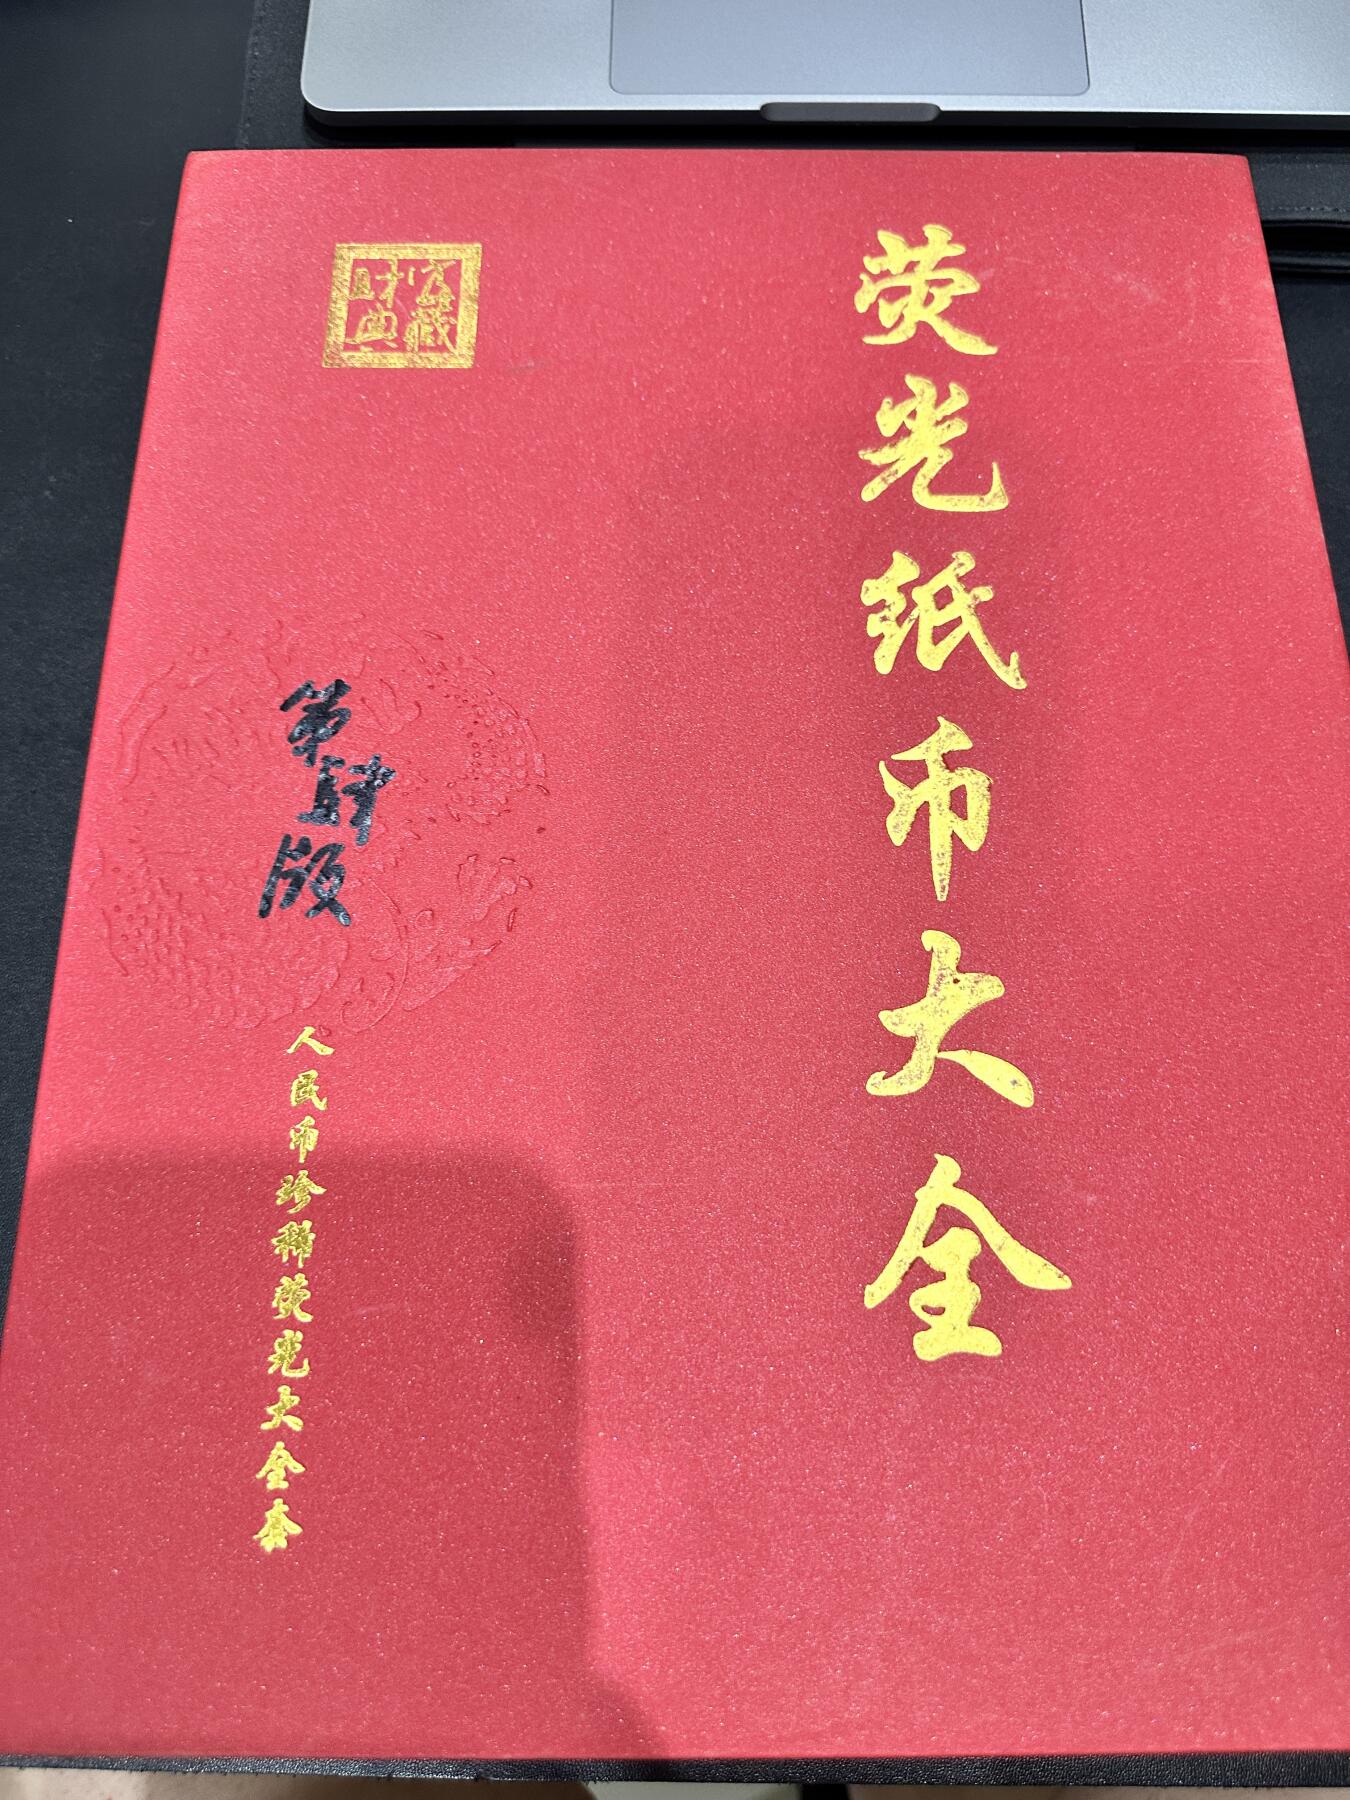 荧光纸币大全
官藏
财典
第肆版
人民币珍稀荧光大全套